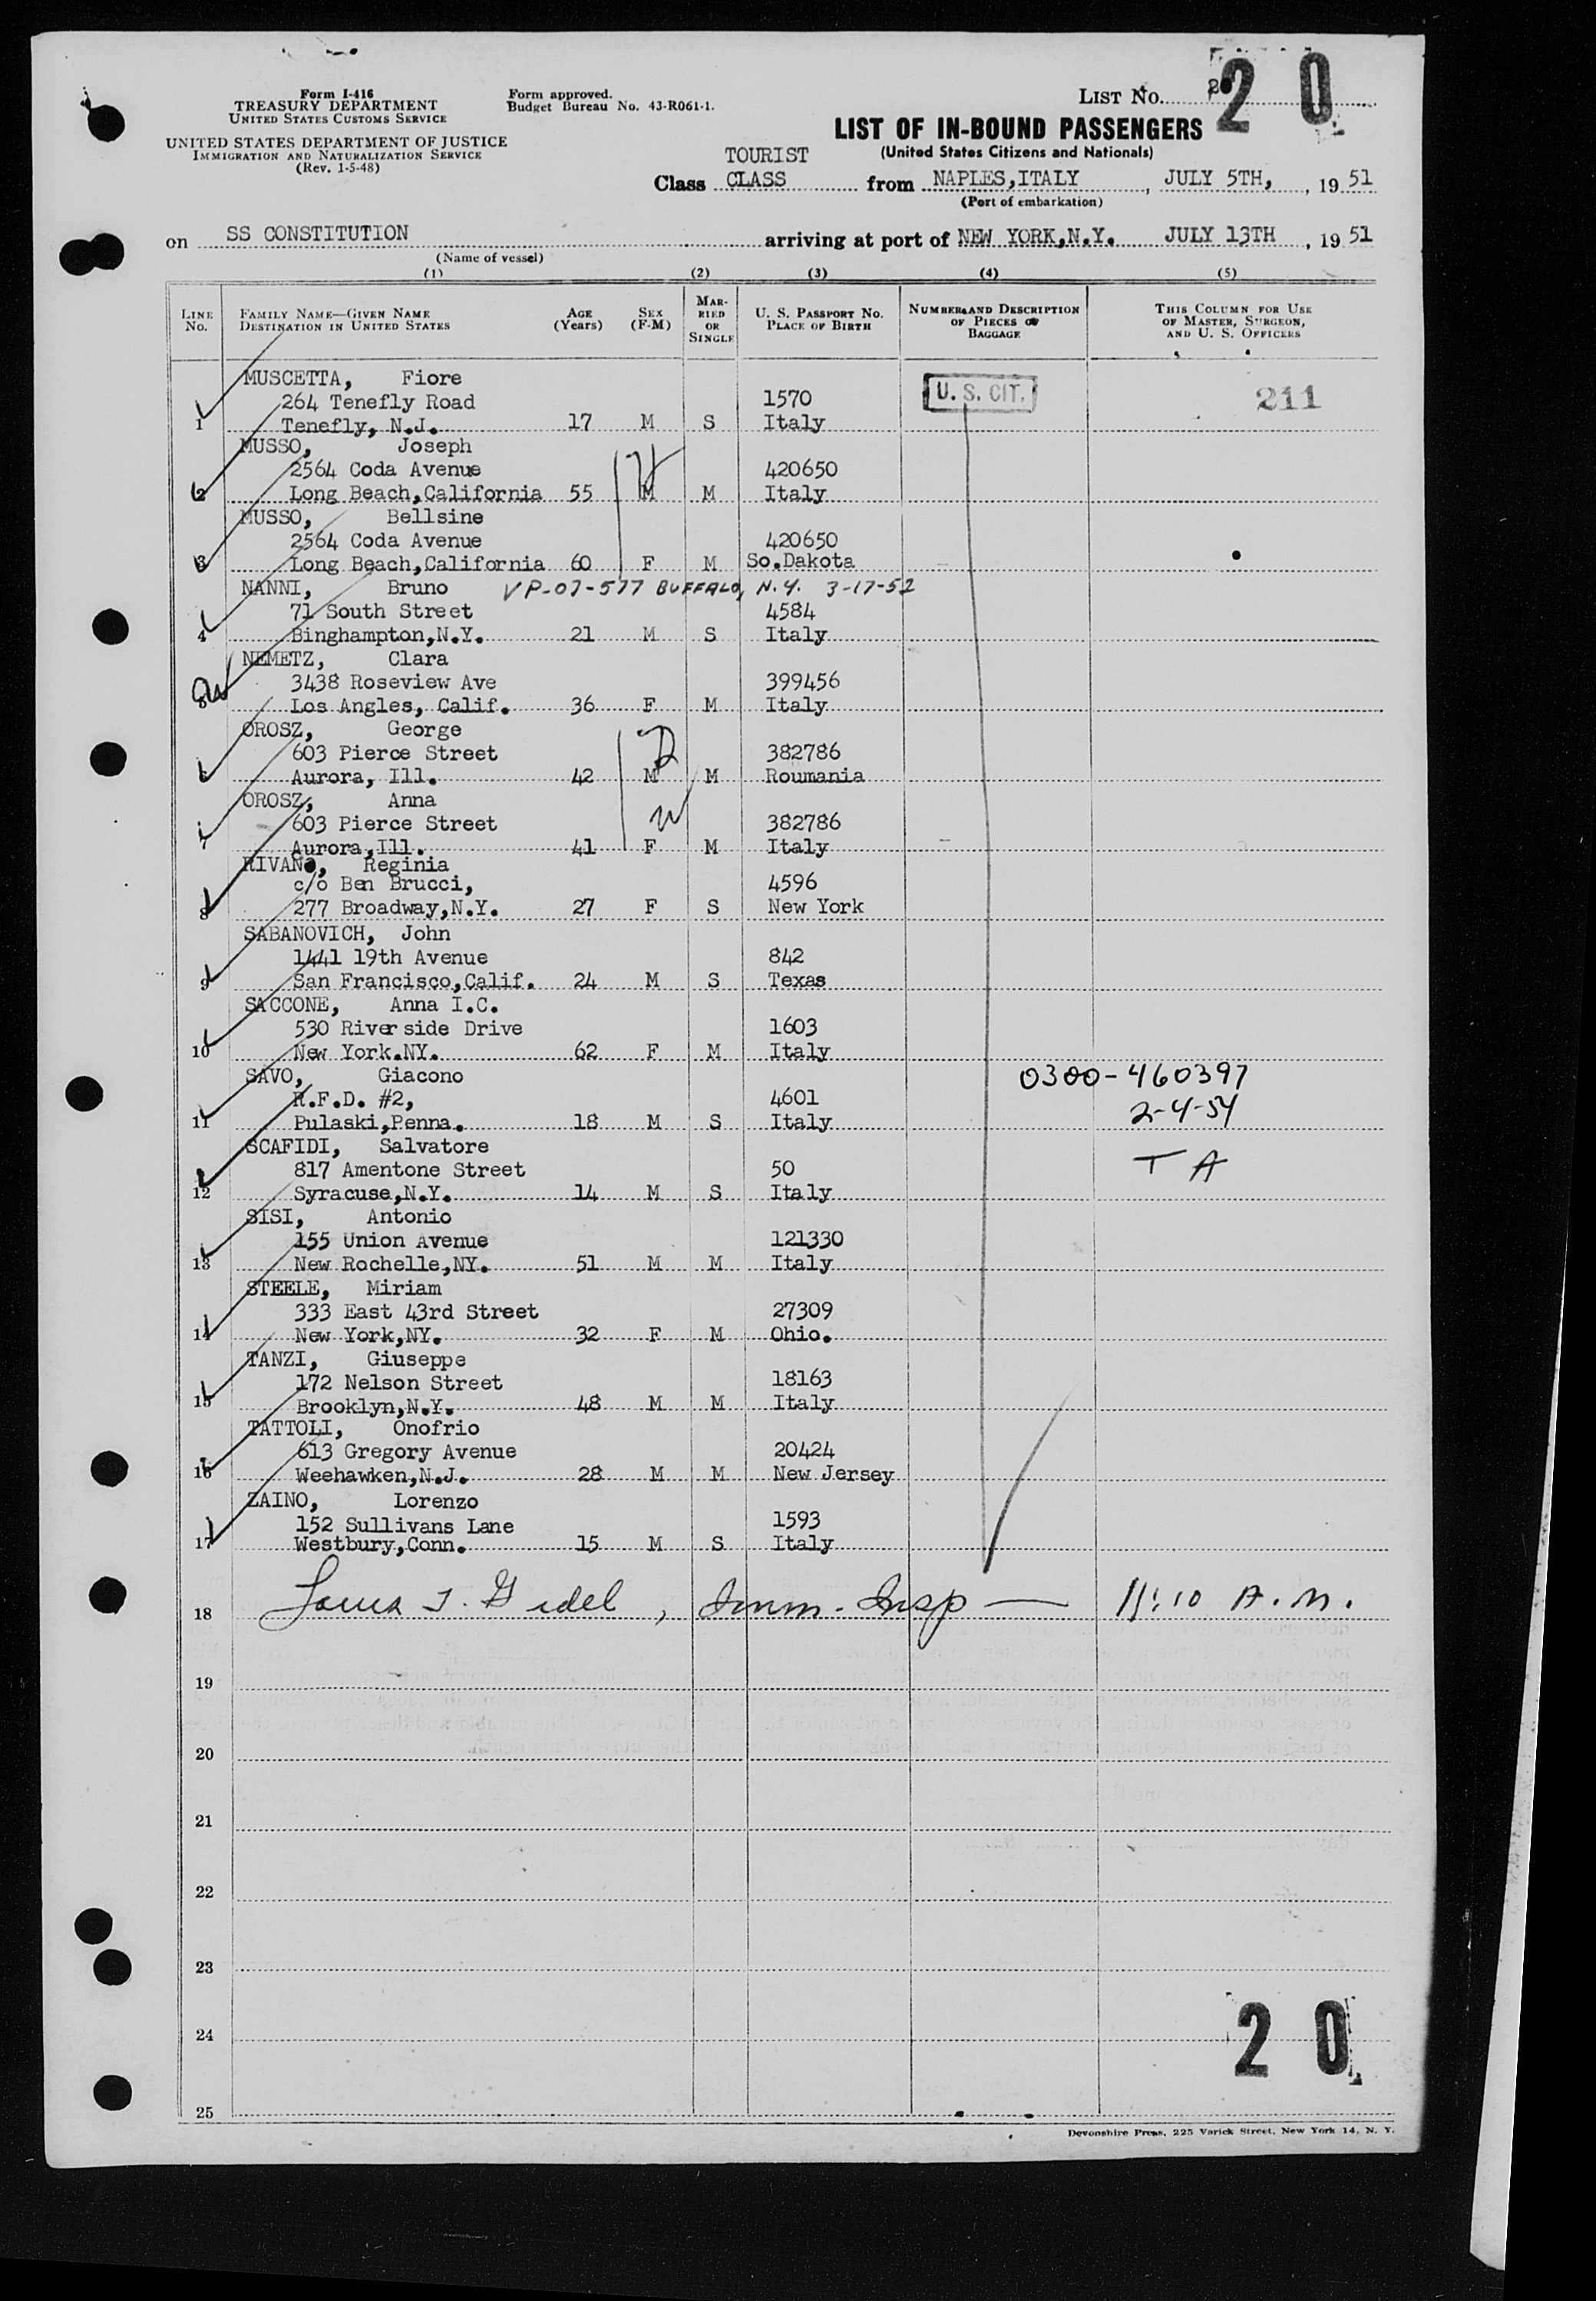 Form I-416
TREASURY DEPARTMENT
UNITED STATES CUSTOMS SERVICE
UNITED STATES DEPARTMENT OF JUSTICE
IMMIGRATION AND NATURALIZATION SERVICE
(Rev. 1-5-48)
Form approved.
Budget Bureau No. 43-R061-1.
LIST No. 20
20
LIST OF IN-BOUND PASSENGERS
(United States Citizens and Nationals)
TOURIST
Class CLASS from NAPLES,ITALY, JULY 5TH, , 19 51
(Port of embarkation)
on SS CONSTITUTION arriving at port of NEW YORK,N.Y. JULY 13TH , 19 51
(Name of vessel)
(1) (2) (3) (4) (5)
LINE No. FAMILY NAME—GIVEN NAME DESTINATION IN UNITED STATES AGE (Years) SEX (F-M) MARRIED OR SINGLE U. S. PASSPORT NO. PLACE OF BIRTH NUMBER AND DESCRIPTION OF PIECES OF BAGGAGE THIS COLUMN FOR USE OF MASTER, SURGEON, AND U. S. OFFICERS
MUSCETTA, Fiore
264 Tenefly Road 1570 U. S. CIT. 211
1 Tenefly, N.J. 17 M S Italy
MUSSO, Joseph
2564 Coda Avenue 420650
2 Long Beach,California 55 M M Italy
MUSSO, Bellsine
2564 Coda Avenue 420650
3 Long Beach,California 60 F M So.Dakota
NANNI, Bruno VP-07-577 BUFFALO, N.Y. 3-17-52
71 South Street 4584
4 Binghampton,N.Y. 21 M S Italy
NEMETZ, Clara
3438 Roseview Ave 399456
Los Angles, Calif. 36 F M Italy
OROSZ, George
603 Pierce Street 382786
6 Aurora, Ill. 42 M M Roumania
OROSZ, Anna
603 Pierce Street 382786
7 Aurora,Ill. 41 F M Italy
RIVANO, Reginia
c/o Ben Brucci, 4596
8 277 Broadway,N.Y. 27 F S New York
SABANOVICH, John
1441 19th Avenue 842
9 San Francisco,Calif. 24 M S Texas
SACCONE, Anna I.C.
530 Riverside Drive 1603
10 New York.NY. 62 F M Italy
SAVO, Giacono 0300-460397
R.F.D. #2, 4601 2-4-54
11 Pulaski,Penna. 18 M S Italy
SCAFIDI, Salvatore T A
817 Amentone Street 50
12 Syracuse,N.Y. 14 M S Italy
SISI, Antonio
155 Union Avenue 121330
13 New Rochelle,NY. 51 M M Italy
STEELE, Miriam
333 East 43rd Street 27309
14 New York,NY. 32 F M Ohio.
TANZI, Giuseppe
172 Nelson Street 18163
15 Brooklyn,N.Y. 48 M M Italy
TATTOLI, Onofrio
613 Gregory Avenue 20424
16 Weehawken,N.J. 28 M M New Jersey
ZAINO, Lorenzo
152 Sullivans Lane 1593
17 Westbury,Conn. 15 M S Italy
18 Imm. Insp — 11:10 A.M.
19
20
21
22
23
24
20
25
Devonshire Press, 225 Varick Street, New York 14, N. Y.